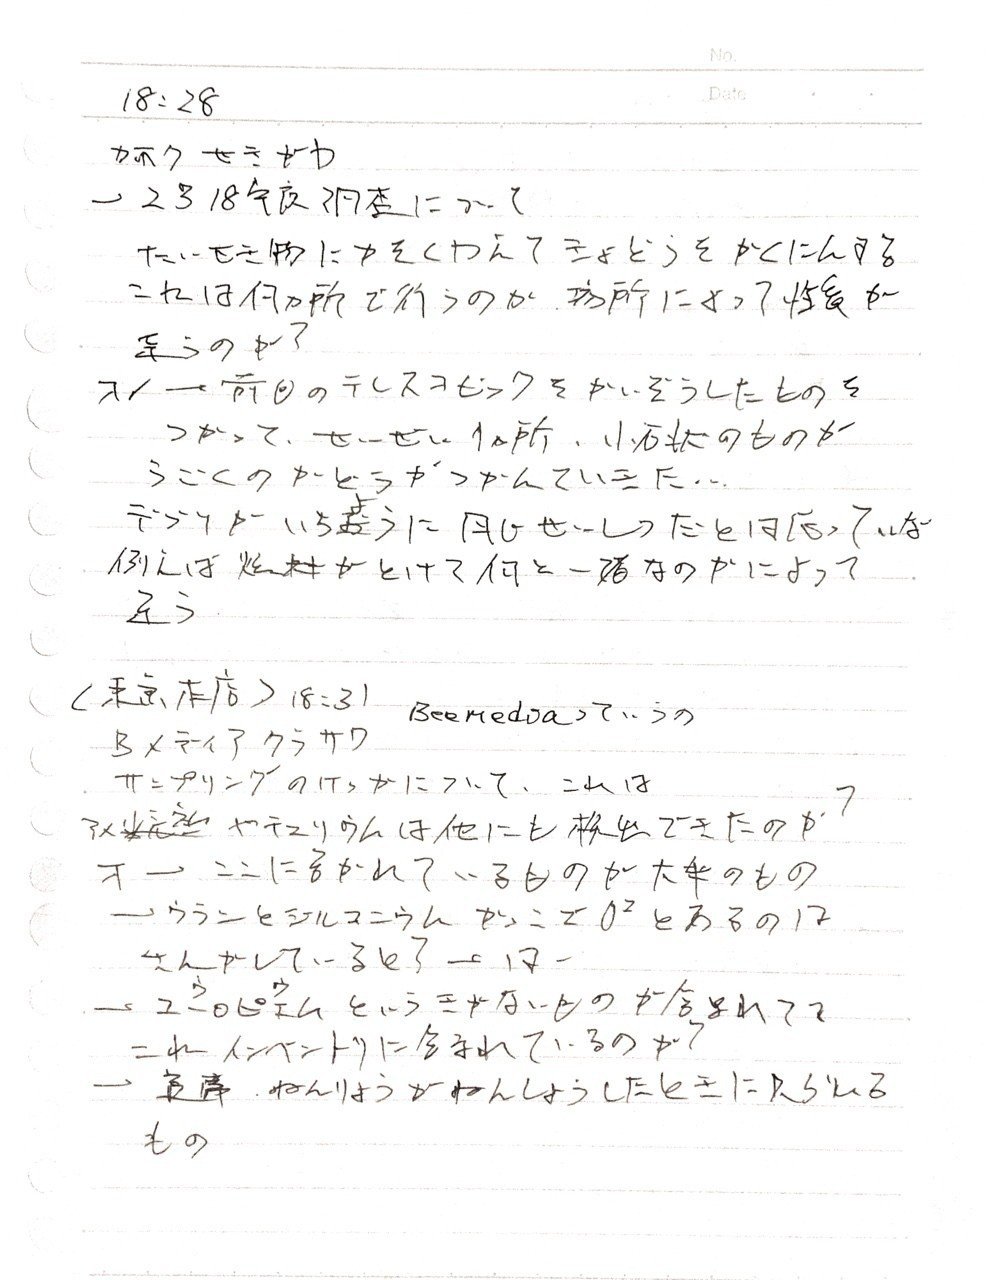 No.
Date
18:28
カホク せきがわ
→ 2号18年度調査について
たいせき物にカをくわえてきょどうをかくにんする
これは何ヵ所で行うのか 場所によって性質が
違うのか?
オノ → 前回のテレスコピックをかいぞうしたものを
つかって、せいぜい1ヵ所、小石状のものが
うごくのかどうかつかんでいきた…
デブリがいちように同じせいしつだとは思っていな
例えば 燃料がとけて何と一緒なのかによって
違う
〈東京本店〉18:31
Beemediaっていうの
Bメディアクラサワ
サンプリングのけっかについて、これは
やテュリウムは他にも検出できたのか?
オ → ここに書かれているものが大半のもの
→ ウランとジルコニウム かっこでO²とあるのは
さんかしていると? → はー
→ ユウロピウムというきがないものが含まれてて
これ インベントリに含まれているのか?
→ ねんりょうがねんしょうしたときに見られる
もの